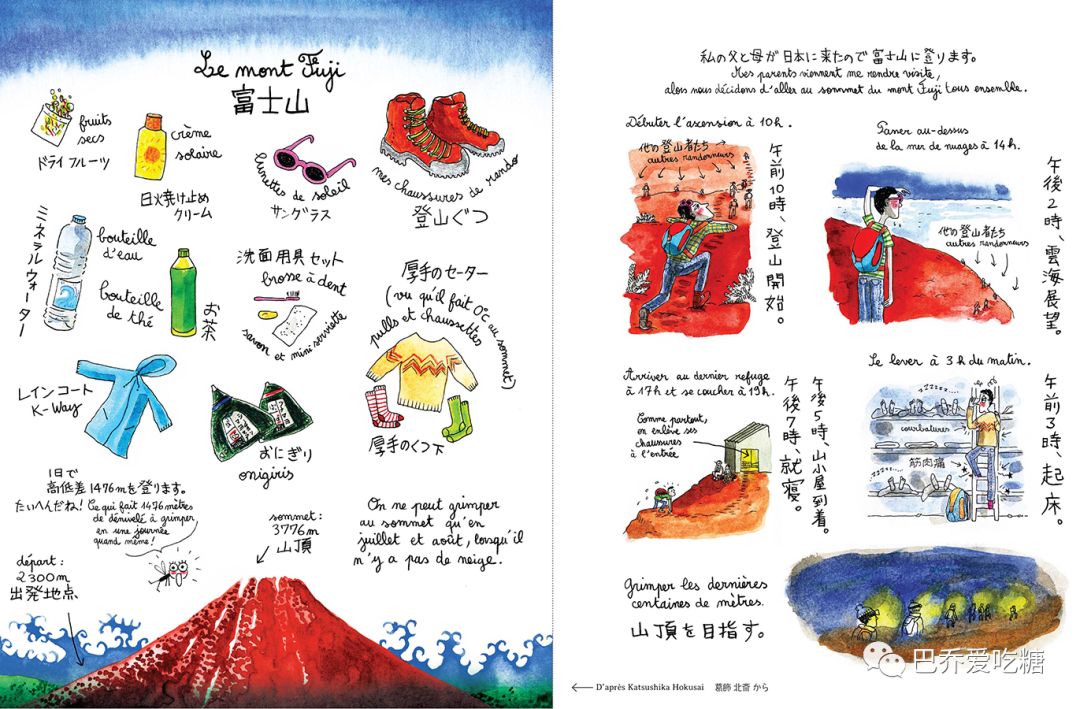 Le mont Fuji
富士山
fruits
secs
ドライ フルーツ
crème
solaire
日火焼け止め
クリーム
lunettes de soleil
サングラス
mes chaussures de rando
登山ぐつ
ミネラルウォーター
bouteille
d'eau
bouteille
de thé
お茶
洗面用具セット
brosse à dent
savon et mini serviette
厚手のセーター
(vu qu'il fait 0°C au sommet)
pulls et chaussettes
厚手のくつ下
レインコート
K-Way
おにぎり
onigiris
1日で
高低差1476mを登ります。
たいへんだね!
Ce qui fait 1476 mètres
de dénivelé à grimper
en une journée
quand même!
départ:
2300m
出発地点、
sommet:
3776m
山頂
On ne peut grimper
au sommet qu'en
juillet et août, lorsqu'il
n'y a pas de neige.
私の父と母が日本に来たので富士山に登ります。
Mes parents viennent me rendre visite,
alors nous décidons d'aller au sommet du mont Fuji tous ensemble.
Débuter l'ascension à 10h.
他の登山者たち
autres randonneurs
午前10時、登山開始。
Flâner au-dessus
de la mer de nuages à 14h.
他の登山者たち
autres randonneurs
午後2時、雲海展望。
Arriver au dernier refuge
à 17h et se coucher à 19h.
Comme partout,
on enlève ses
chaussures
à l'entrée
午後5時、山小屋到着。
午後7時、就寝。
Se lever à 3h du matin.
courbatures
筋肉痛
午前3時、起床。
Grimper les dernières
centaines de mètres.
山頂を目指す。
D'après Katsushika Hokusai 葛飾 北斎 から
巴乔爱吃糖